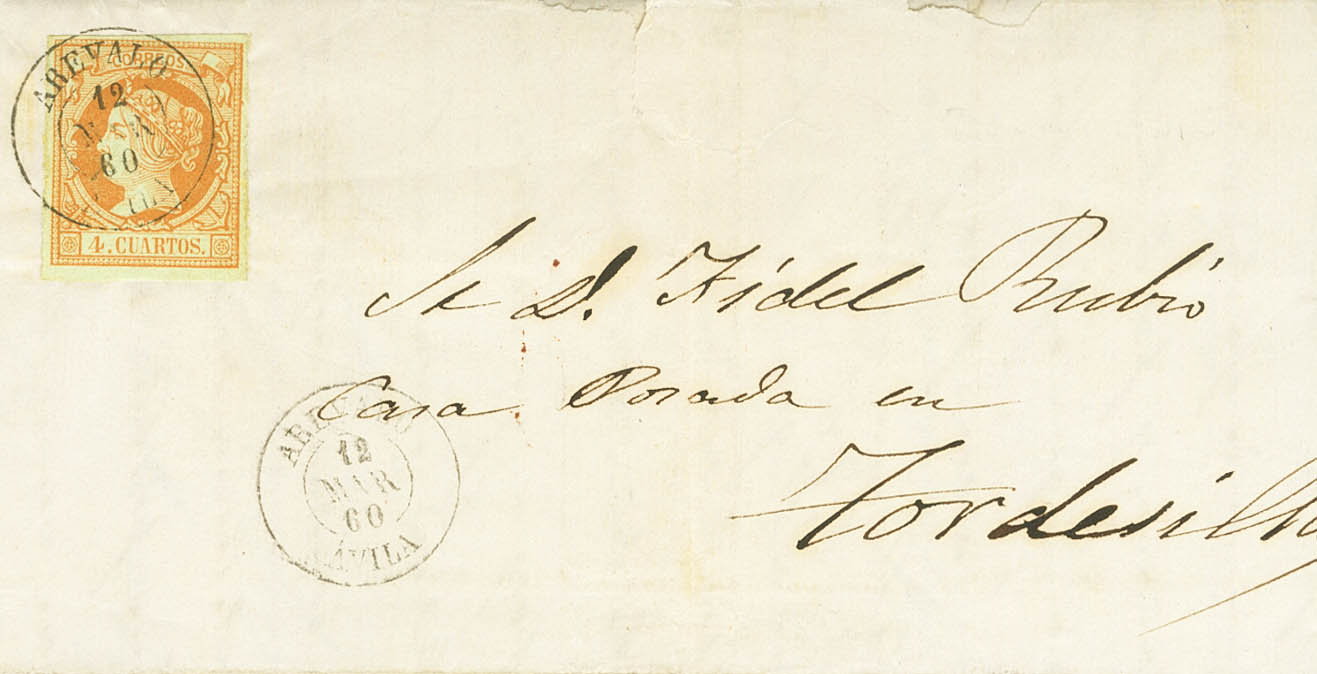 AREVALO
CORREOS
12
MAR
60
4. CUARTOS.
Sr. D. Fidel Rubio
Casa Posada en
Tordesillas
AREVALO
12
MAR
60
ÁVILA